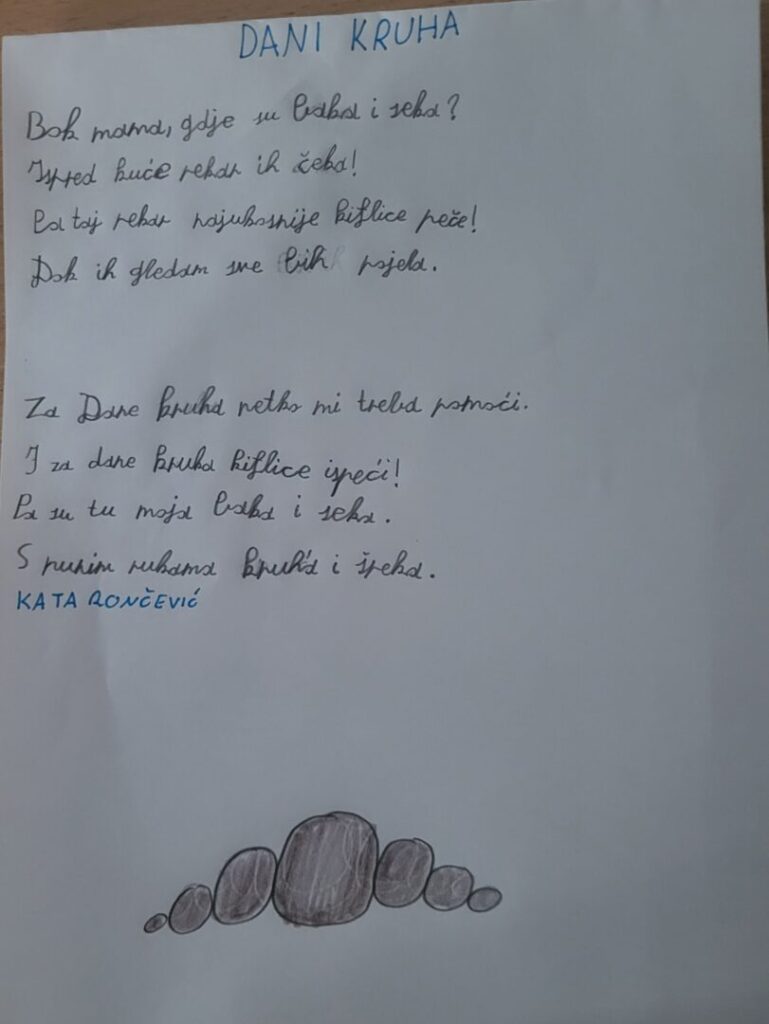 DANI KRUHA
Bok mama, gdje su baka i seka?
Ispred kuće pekar ih čeka!
Pa taj pekar najukusnije kiflice peče!
Dok ih gledam sve bih pojela.
Za Dane kruha netko mi treba pomoći.
I za dane kruha kiflice ispeći!
Pa su tu moja baka i seka.
S punim rukama kruha i špeka.
KATA RONČEVIĆ